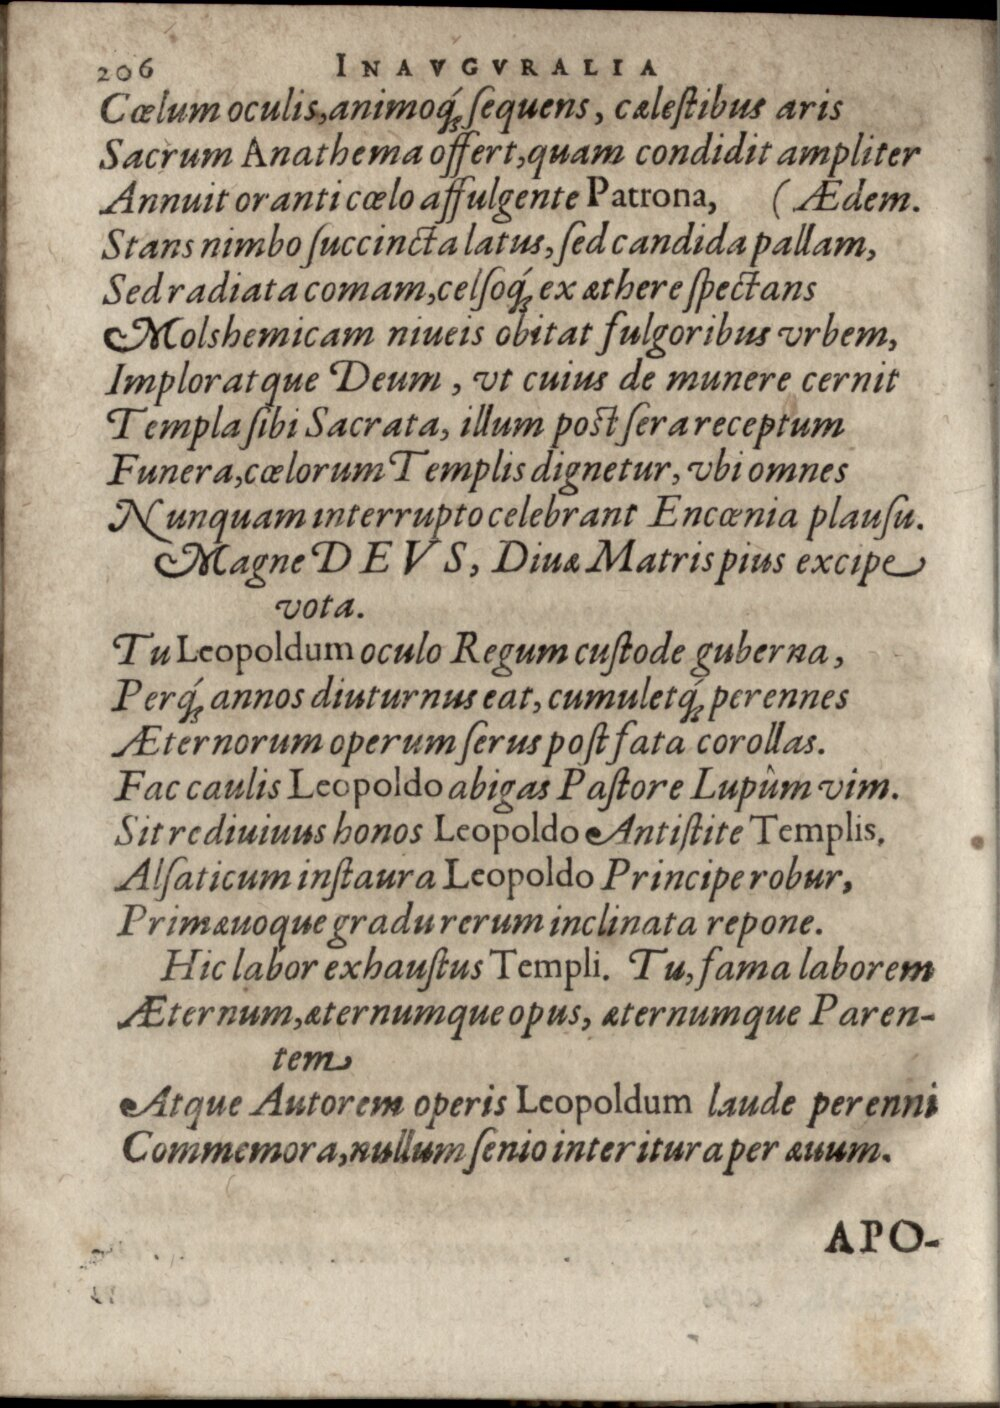 206 INAVGVRALIA
Cœlum oculis, animoq́; ſequens, cæleſtibus aris
Sacrum Anathema offert, quam condidit ampliter
Annuit oranti cœlo affulgente Patrona, ( Ædem.
Stans nimbo ſuccincta latus, ſed candida pallam,
Sed radiata comam, celſoq́; ex æthere ſpectans
Molshemicam niueis obitat fulgoribus vrbem,
Imploratque Deum, vt cuius de munere cernit
Templa ſibi Sacrata, illum post ſera receptum
Funera, cœlorum Templis dignetur, vbi omnes
Nunquam interrupto celebrant Encœnia plauſu.
Magne DEVS, Diuæ Matris pius excipe
vota.
Tu Leopoldum oculo Regum cuſtode guberna,
Perq́; annos diuturnus eat, cumuletq́; perennes
Æternorum operum ſerus poſt fata corollas.
Fac caulis Leopoldo abigas Paſtore Lupûm vim.
Sit rediuiuus honos Leopoldo Antiſtite Templis.
Alſaticum inſtaura Leopoldo Principe robur,
Primæuoque gradu rerum inclinata repone.
Hic labor exhauſtus Templi. Tu, fama laborem
Æternum, æternumque opus, æternumque Paren-
tem
Atque Autorem operis Leopoldum laude perenni
Commemora, nullum ſenio interitura per æuum.
APO-